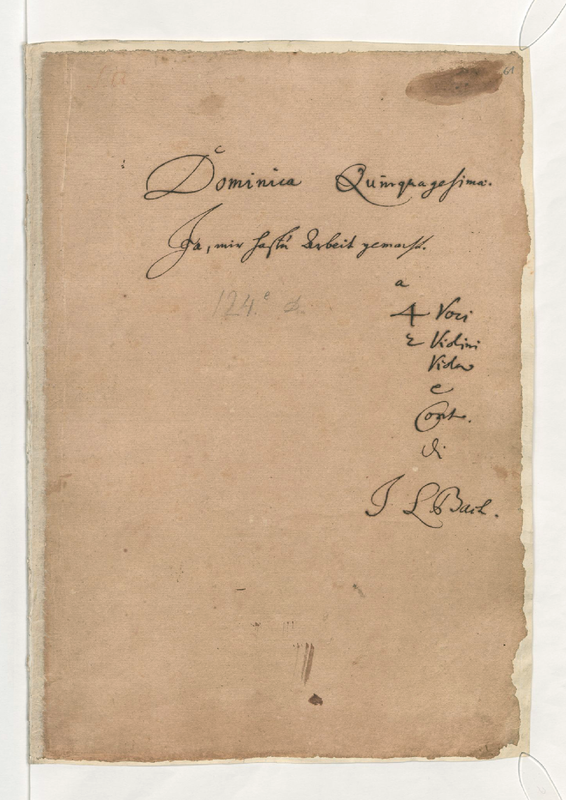 61
Dominica Quinquagesima.
Ja, mir hastu Arbeit gemacht.
124.
a
4 Voci
2 Violini
Viola
e
Cont.
di
J L Bach.